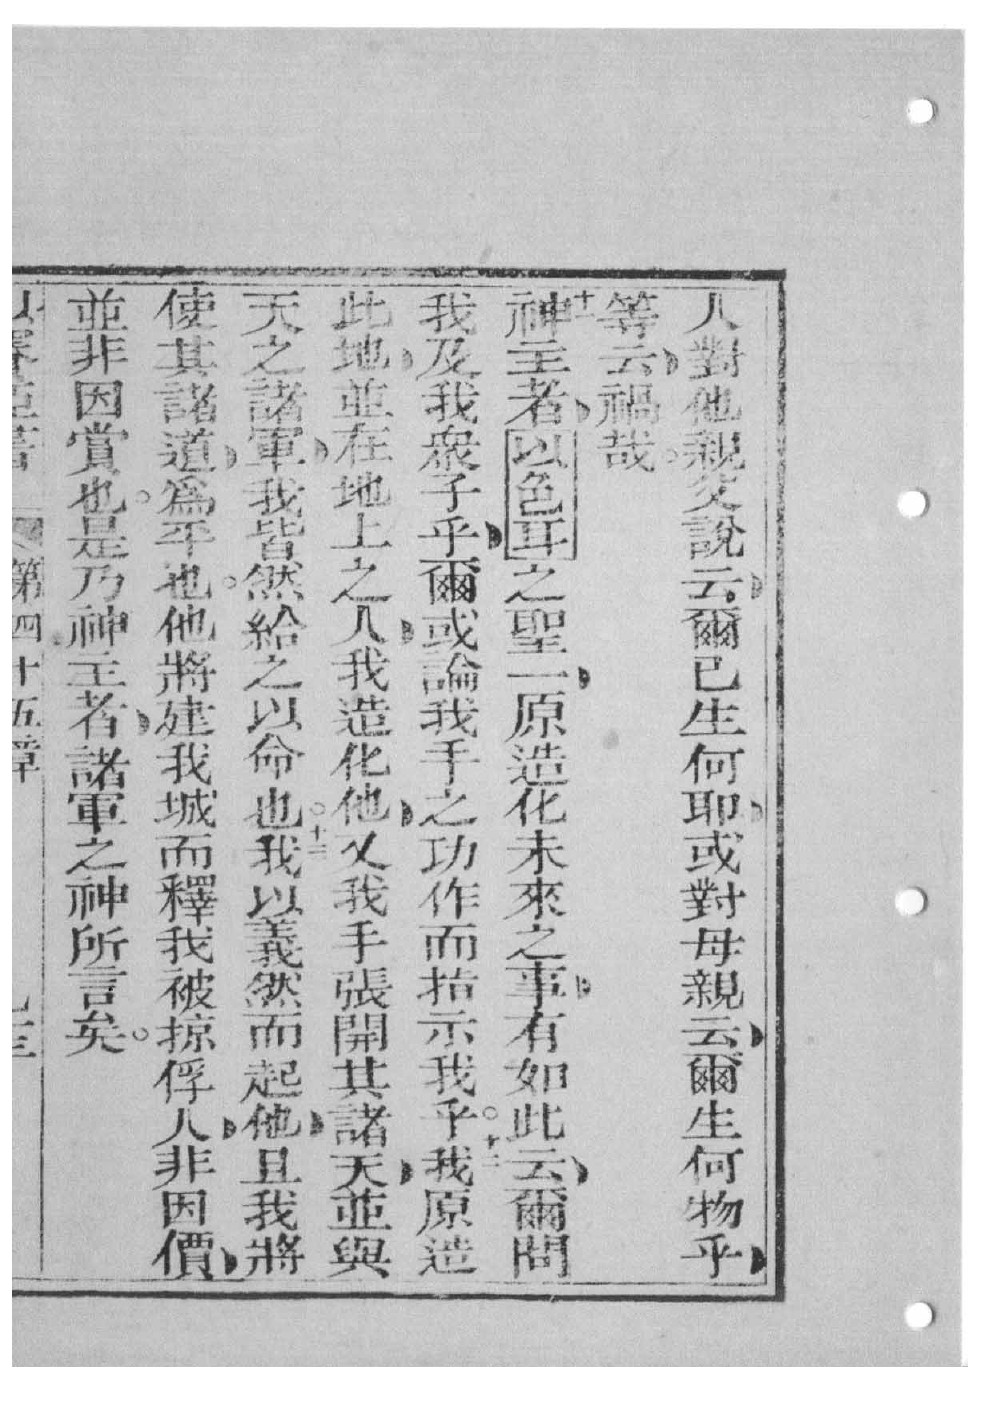 人對他親父說云爾已生何耶或對母親云爾生何物乎
等云禍哉
十一神主者以色耳之聖一原造化未來之事有如此云爾問
我及我衆子乎爾或論我手之功作而指示我乎十二我原造
此地並在地上之人我造化他又我手張開其諸天並與
天之諸軍我皆然給之以命也十三我以義然而起他且我將
使其諸道爲平也他將建我城而釋我被掠俘人非因價
並非因賞也是乃神主者諸軍之神所言矣
第四十五章